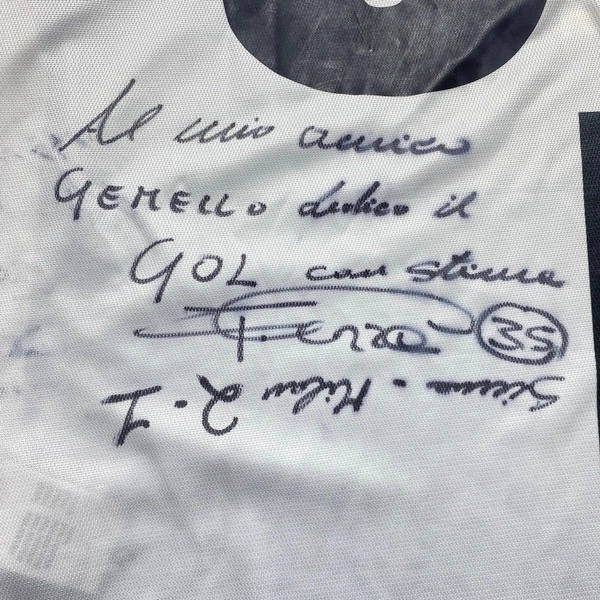 Al mio amico
GEMELLO dedico il
GOL con stima
35
Siena - Milan 2-1